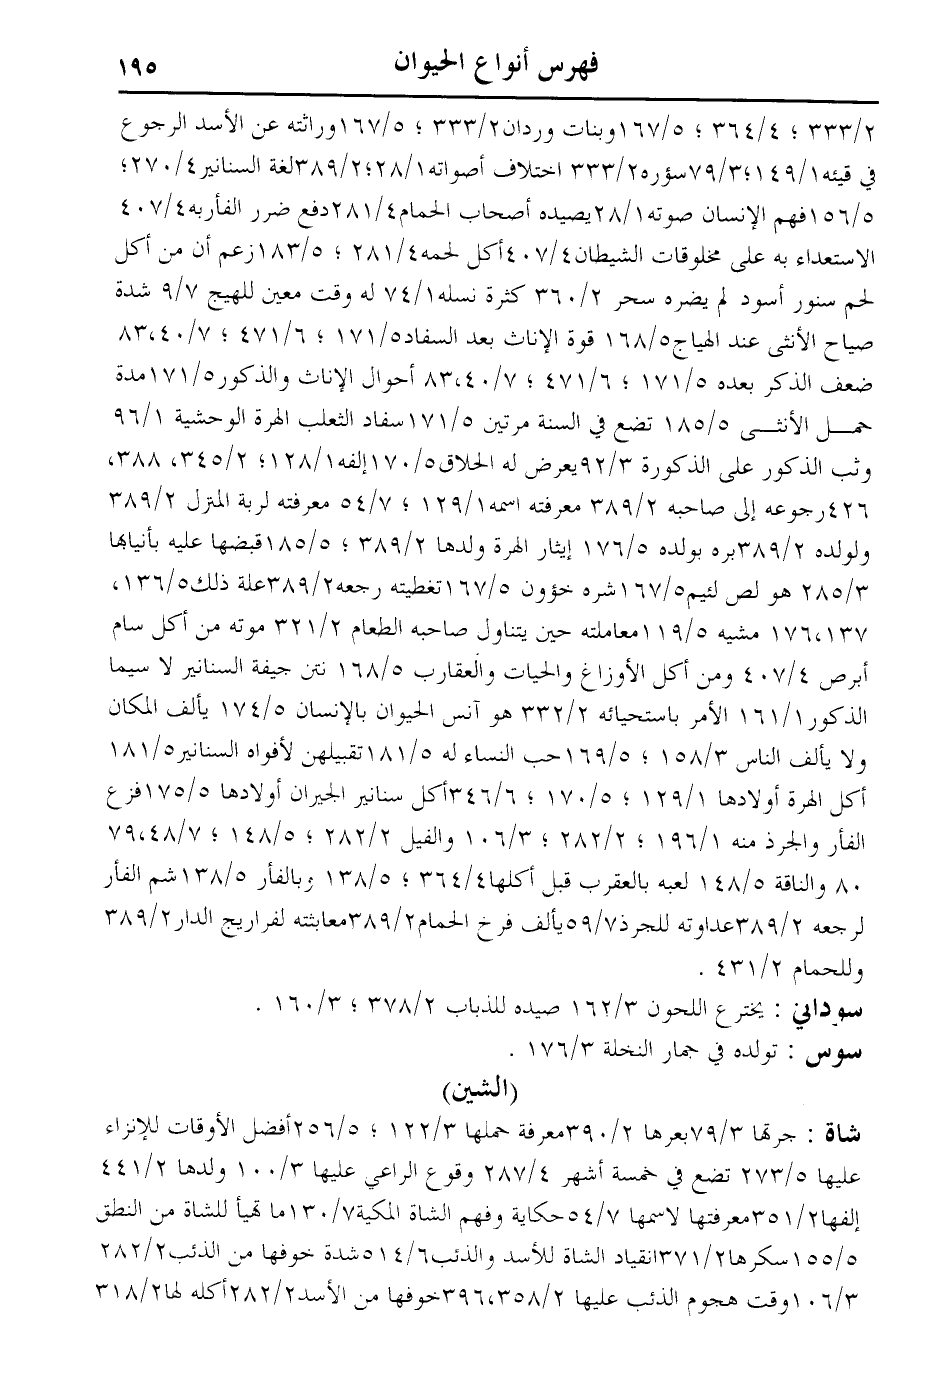 فهرس أنواع الحيوان ١٩٥
٣٣٣/٢ ؛ ٣٦٤/٤ ؛ ١٦٧/٥وبنات وردان٣٣٣/٢ ؛ ١٦٧/٥وراثته عن الأسد الرجوع
في قيئه١٤٩/١؛٧٩/٣سؤره٣٣٣/٢ اختلاف أصواته٢٨/١؛٣٨٩/٢لغة السنانير٢٧٠/٤؛
١٥٦/٥فهم الإنسان صوته٢٨/١يصيده أصحاب الحمام٢٨١/٤دفع ضرر الفأربه٤٠٧/٤
الاستعداء به على مخلوقات الشيطان٤٠٧/٤أكل لحمه٢٨١/٤ ؛ ١٨٣/٥زعم أن من أكل
لحم سنور أسود لم يضره سحر ٣٦٠/٢ كثرة نسله٧٤/١ له وقت معين للهيج ٩/٧ شدة
صياح الأنثى عند الهياج١٦٨/٥ قوة الإناث بعد السفاد١٧١/٥ ؛ ٤٧١/٦ ؛ ٨٣،٤٠/٧
ضعف الذكر بعده ١٧١/٥ ؛ ٤٧١/٦ ؛ ٨٣،٤٠/٧ أحوال الإناث والذكور١٧١/٥مدة
حمـــل الأنثـــى ١٨٥/٥ تضع في السنة مرتين ١٧١/٥سفاد الثعلب الهرة الوحشية ٩٦/١
وثب الذكور على الذكورة ٩٢/٣يعرض له الحلاق١٧٠/٥إلفه١٢٨/١؛ ٣٤٥/٢، ٣٨٨،
٤٢٦رجوعه إلى صاحبه ٣٨٩/٢ معرفته اسمه١٢٩/١ ؛ ٥٤/٧ معرفته لربة المنزل ٣٨٩/٢
ولولده ٣٨٩/٢بره بولده ١٧٦/٥ إيثار الهرة ولدها ٣٨٩/٢ ؛ ١٨٥/٥قبضها عليه بأنيابها
٢٨٥/٣ هو لص لئيم١٦٧/٥شره خؤون ١٦٧/٥تغطيته رجعه٣٨٩/٢علة ذلك١٣٦/٥،
١٧٦،١٣٧ مشيه ١١٩/٥معاملته حين يتناول صاحبه الطعام ٣٢١/٢ موته من أكل سام
أبرص ٤٠٧/٤ ومن أكل الأوزاغ والحيات والعقارب ١٦٨/٥ نتن جيفة السنانير لا سيما
الذكور١٦١/١ الأمر باستحيائه ٣٣٢/٢ هو آنس الحيوان بالإنسان ١٧٤/٥ يألف المكان
ولا يألف الناس ١٥٨/٣ ؛ ١٦٩/٥حب النساء له ١٨١/٥تقبيلهن لأفواه السنانير١٨١/٥
أكل الهرة أولادها ١٢٩/١ ؛ ١٧٠/٥ ؛ ٣٤٦/٦أكل سنانير الجيران أولادها ١٧٥/٥فزع
الفأر والجرذ منه ١٩٦/١ ؛ ٢٨٢/٢ ؛ ١٠٦/٣ والفيل ٢٨٢/٢ ؛ ١٤٨/٥ ؛ ٧٩،٤٨/٧
٨٠ والناقة ١٤٨/٥ لعبه بالعقرب قبل أكلها٣٦٤/٤ ؛ ١٣٨/٥ وبالفأر ١٣٨/٥شم الفأر
لرجعه ٣٨٩/٢عداوته للجرذ٥٩/٧يألف فرخ الحمام٣٨٩/٢معابثته لفراريج الدار٣٨٩/٢
وللحمام ٤٣١/٢ .
سوداني : يخترع اللحون ١٦٢/٣ صيده للذباب ٣٧٨/٢ ؛ ١٦٠/٣ .
سوس : تولده في جمار النخلة ١٧٦/٣ .
(الشين)
شاة : جرتها ٧٩/٣بعرها ٣٩٠/٢معرفة حملها ١٢٢/٣ ؛ ٢٥٦/٥أفضل الأوقات للإنزاء
عليها ٢٧٣/٥ تضع في خمسة أشهر ٢٨٧/٤ وقوع الراعي عليها ١٠٠/٣ ولدها ٤٤١/٢
إلفها٣٥١/٢معرفتها لاسمها ٥٤/٧حكاية وفهم الشاة المكية١٣٠/٧ما تهيأ للشاة من النطق
١٥٥/٥سكرها٣٧١/٢انقياد الشاة للأسد والذئب٥١٤/٦شدة خوفها من الذئب٢٨٢/٢
١٠٦/٣وقت هجوم الذئب عليها ٣٩٦،٣٥٨/٢خوفها من الأسد٢٨٢/٢أكله لها٣١٨/٢